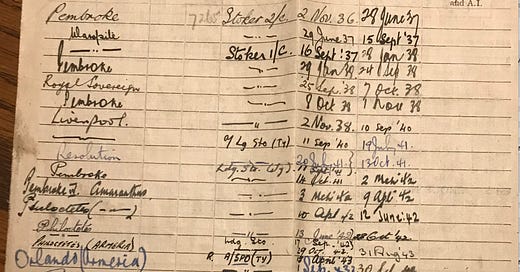 and A.I.
Pembroke 7265 Stoker 2/c. 2 Nov. 36 28 June 37
Warspite —"— 29 June 37 15 Sept '37
—"— Stoker 1/c. 16 Sept '37 28 Jan 38
Pembroke —"— 29 Jan 38 24 Sep 38
Royal Sovereign —"— 25 Sep. 38 7 Oct 38
Pembroke —"— 8 Oct 38 1 Nov 38
Liverpool. —"— 2 Nov. 38. 10 Sep '40
—"— Sto (Ty) 11 Sep '40 19 July 41.
Resolution —"— 20 July 41. 13 Oct. 41.
Pembroke Ldg. Sto. (Ty) 14 Oct. 41 2 Mch 42
Pembroke Amaranthus —"— 3 Mch 42 9 Apl 42
Philoctetes —"— 10 Apl 42 12 June 42
Philoctetes —"— 13 June '42 Oct '42
Philoctetes (Armeria) Ldg. Sto 42 31 Aug 43
Orlando (Armeria) A/SPO (Ty) April 43